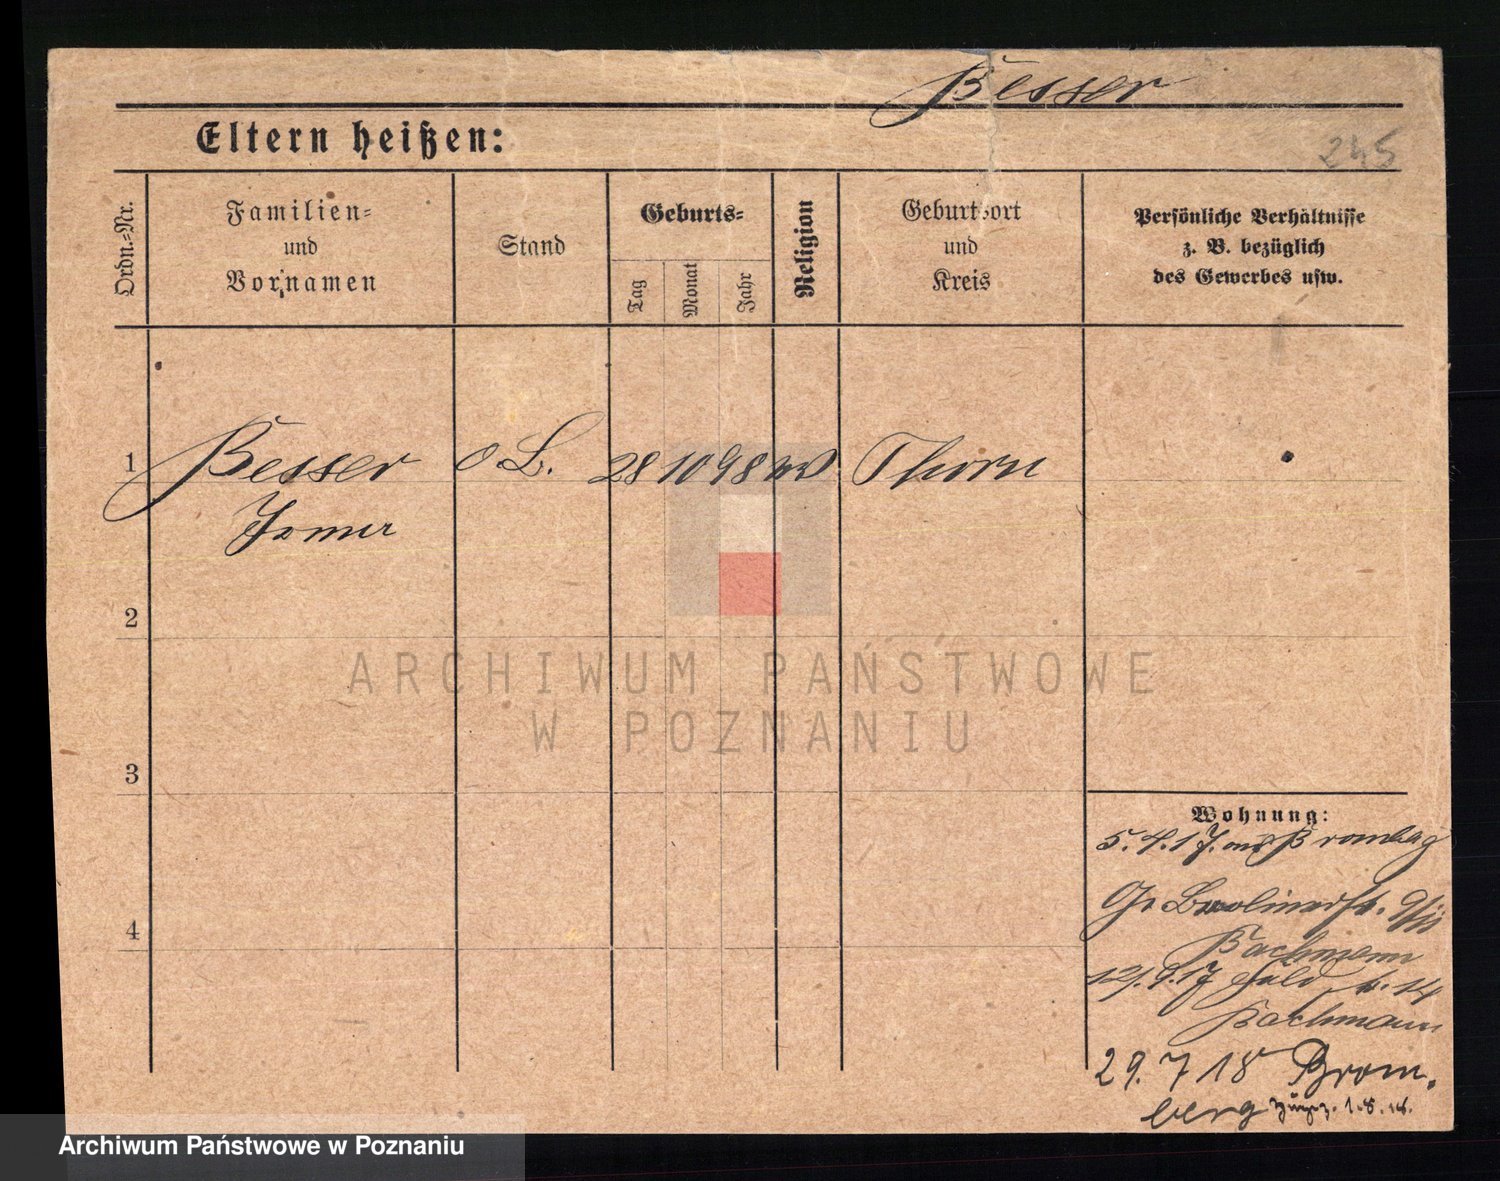 Besser
Eltern heißen:
245
Ordn.=Nr.
Familien=
und
Vornamen
Stand
Geburts=
Tag
Monat
Jahr
Religion
Geburtsort
und
Kreis
Persönliche Verhältnisse
z. B. bezüglich
des Gewerbes usw.
1 Besser o L. 28 10 98 Thorn
2
3
4
ARCHIWUM PAŃSTWOWE
W POZNANIU
Wohnung:
5.4.17. aus Bromberg
Bachmann
12.9.17 14
Bachmann
29.7 18 Brom.
berg 1.8.18.
Archiwum Państwowe w Poznaniu